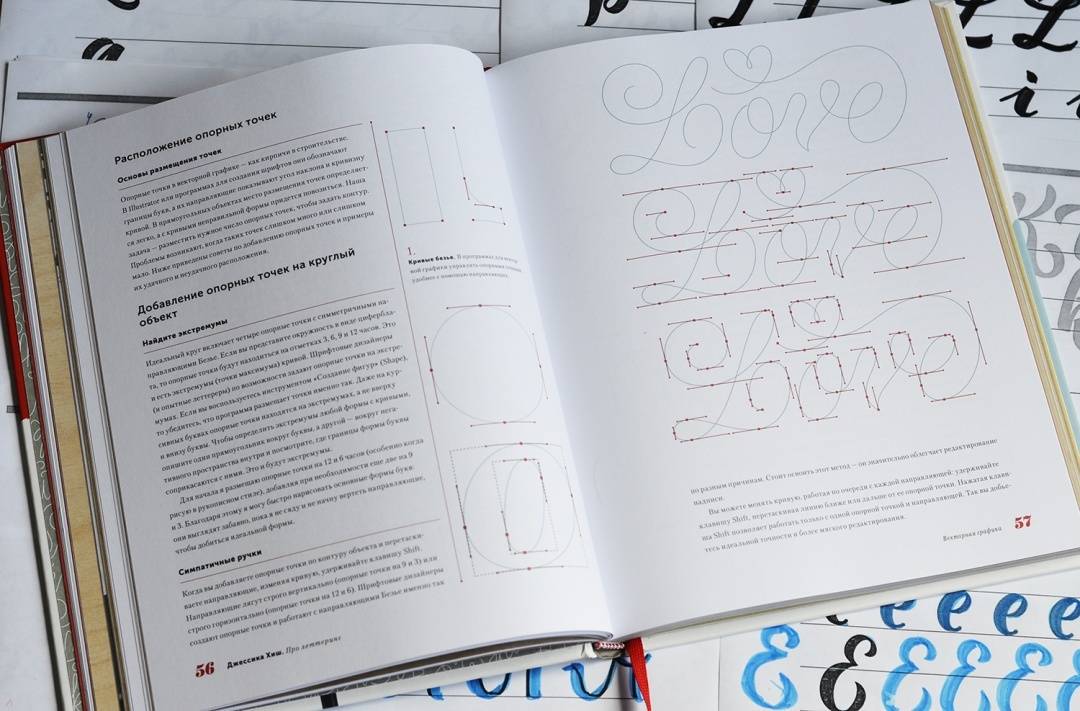 Расположение опорных точек
Основы размещения точек
Опорные точки в векторной графике — как кирпичи в строительстве.
В Illustrator или программах для создания шрифтов они обозначают
границы букв, а их направляющие показывают угол наклона и кривизну
кривой. В прямоугольных объектах место размещения точек определяет-
ся легко, а с кривыми неправильной формы придется повозиться. Наша
задача — разместить нужное число опорных точек, чтобы задать контур.
Проблемы возникают, когда таких точек слишком много или слишком
мало. Ниже приведены советы по добавлению опорных точек и примеры
их удачного и неудачного расположения.
Добавление опорных точек на круглый
объект
Найдите экстремумы
Идеальный круг включает четыре опорные точки с симметричными на-
правляющими Безье. Если вы представите окружность в виде цифербла-
та, то опорные точки будут находиться на отметках 3, 6, 9 и 12 часов. Это
и есть экстремумы (точки максимума) кривой. Шрифтовые дизайнеры
(и опытные леттереры) по возможности задают опорные точки на экстре-
мумах. Если вы воспользуетесь инструментом «Создание фигур» (Shape),
то убедитесь, что программа размещает точки именно так. Даже на кур-
сивных буквах опорные точки находятся на экстремумах, а не вверху
и внизу буквы. Чтобы определить экстремумы любой формы с кривыми,
опишите один прямоугольник вокруг буквы, а другой — вокруг нега-
тивного пространства внутри и посмотрите, где границы формы буквы
соприкасаются с ними. Это и будут экстремумы.
Для начала я размещаю опорные точки на 12 и 6 часов (особенно когда
рисую в рукописном стиле), добавляя при необходимости еще две на 9
и 3. Благодаря этому я могу быстро нарисовать основные формы букв:
они выглядят забавно, пока я не сяду и не начну вертеть направляющие,
чтобы добиться идеальной формы.
Симпатичные ручки
Когда вы добавляете опорные точки по контуру объекта и перетаски-
ваете направляющие, изменяя кривую, удерживайте клавишу Shift.
Направляющие лягут строго вертикально (опорные точки на 9 и 3) или
строго горизонтально (опорные точки на 12 и 6). Шрифтовые дизайнеры
создают опорные точки и работают с направляющими Безье именно так
56 Джессика Хиш. Про леттеринг
1.
Кривые безье. В программах для вектор-
ной графики управлять опорными точками
удобнее с помощью направляющих.
Love
Love
Love
по разным причинам. Стоит освоить этот метод — он значительно облегчает редактирование
надписи.
Вы можете менять кривую, работая по очереди с каждой направляющей: удерживайте
клавишу Shift, перетаскивая линию ближе или дальше от ее опорной точки. Нажатая клави-
ша Shift позволяет работать только с одной опорной точкой и направляющей. Так вы добье-
тесь идеальной точности и более мягкого редактирования.
Векторная графика 57